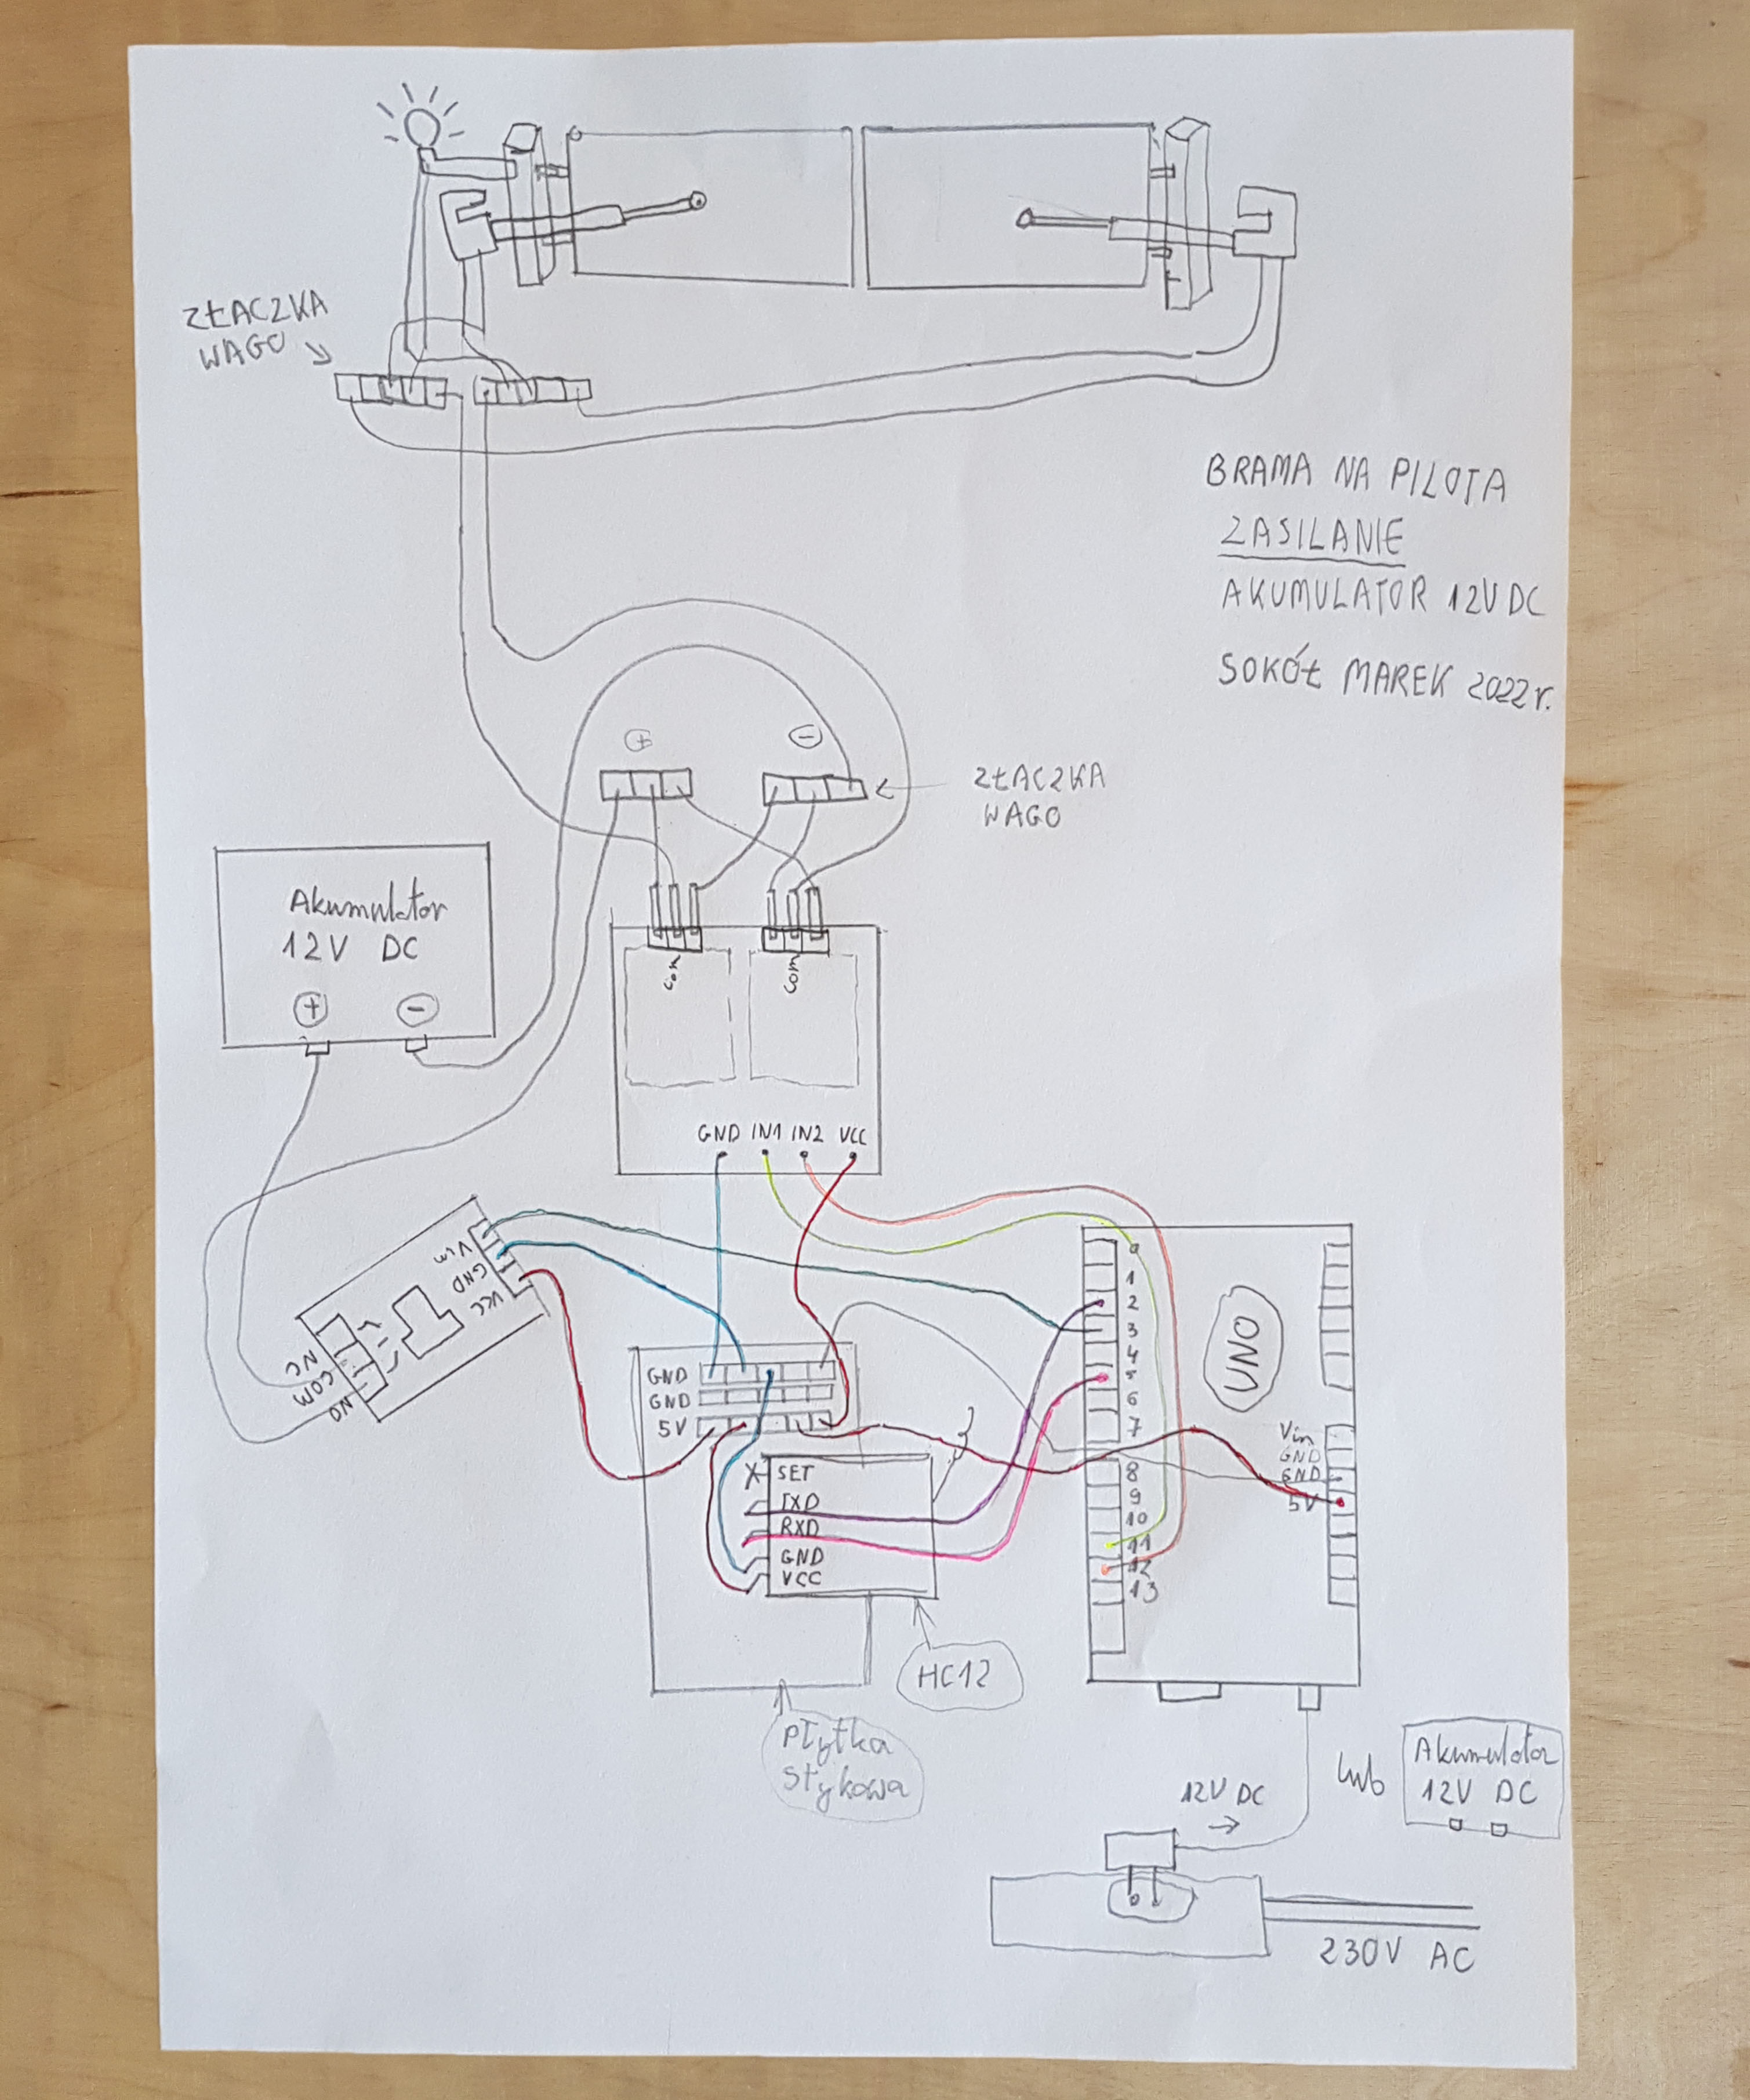 ZŁACZKA
WAGO
BRAMA NA PILOTA
ZASILANIE
AKUMULATOR 12V DC
SOKÓŁ MAREK 2022 r.
+
-
ZŁACZKA
WAGO
Akumulator
12V DC
+
-
COM
COM
GND IN1 IN2 VCC
Vin
GND
VCC
NC
COM
NO
GND
GND
5V
SET
TXD
RXD
GND
VCC
HC12
Płytka
stykowa
UNO
0
1
2
3
4
5
6
7
8
9
10
11
12
13
Vin
GND
GND
5V
12V DC
lub
Akumulator
12V DC
230V AC